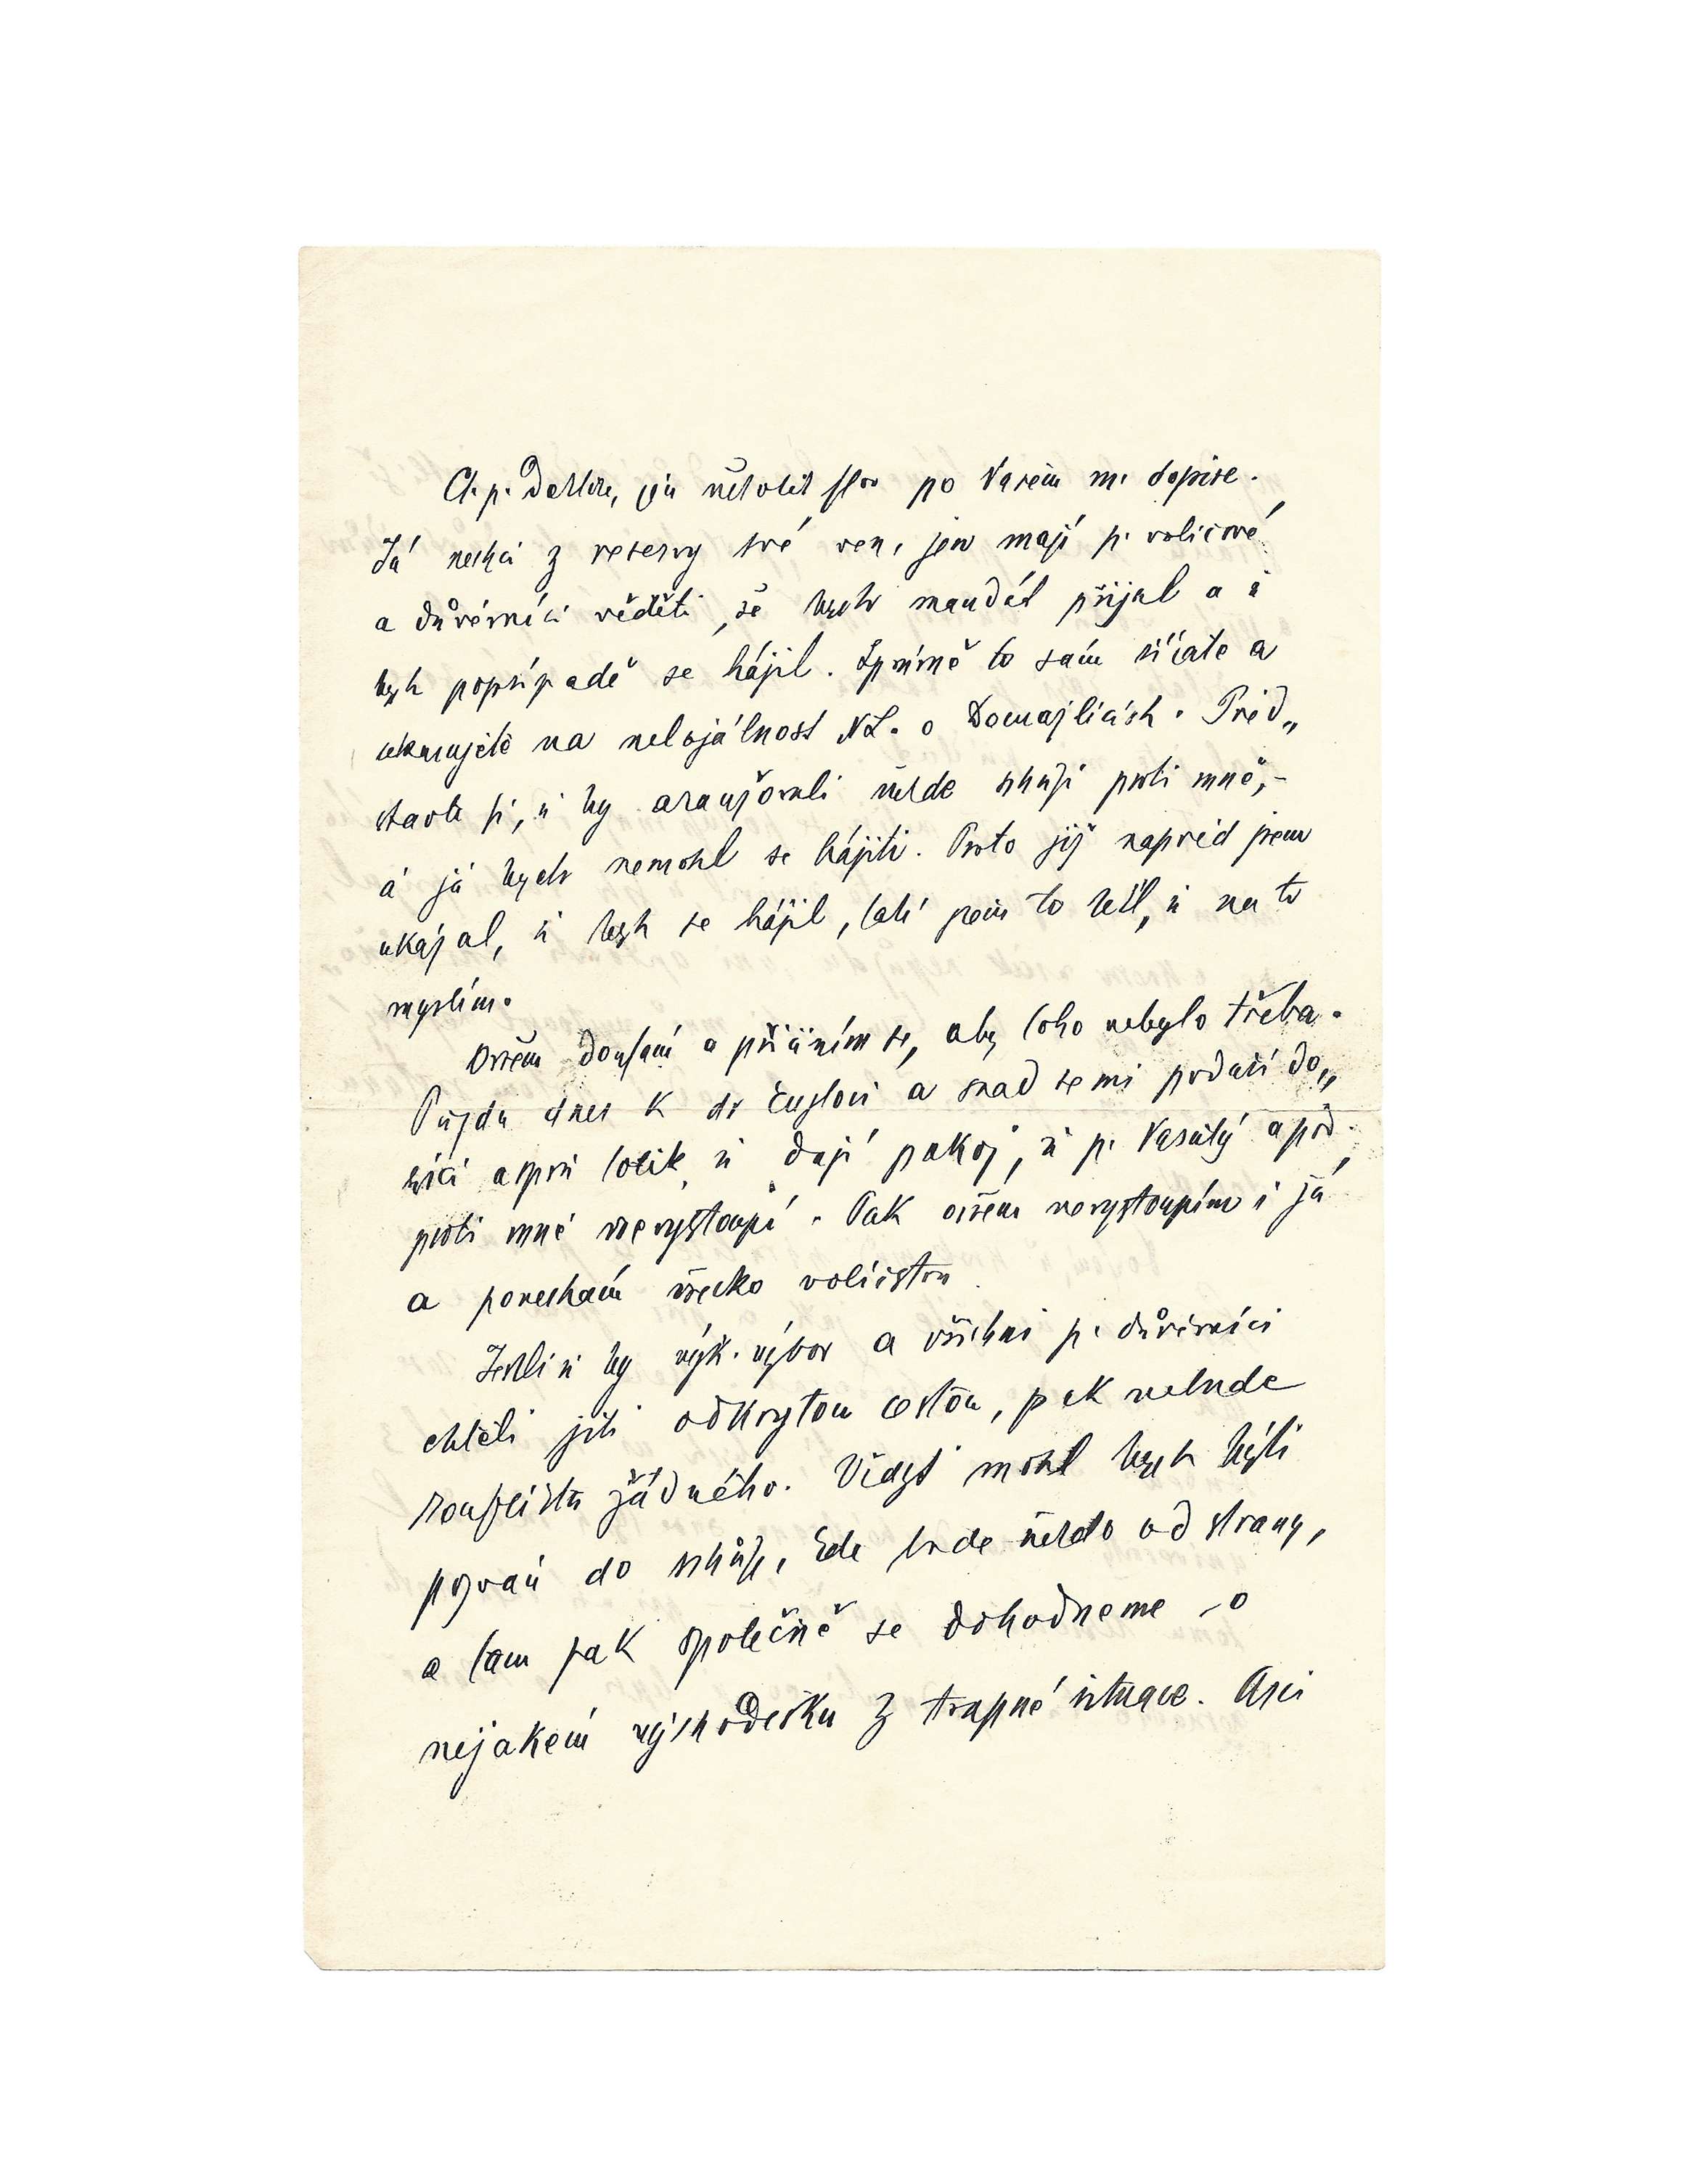 Ct. p. Doktore, jen několik slov po Vašem mi dopise.
Já nechci z reservy své ven, jen mají p. voličové
a důvěrníci věděti, že bych mandát přijal a že
bych popřípadě se hájil. Správně to sám cítíte a
ukazujete na nelojálnost NL. o Domažlicích. Před„
stavte si, že by aranžovali někde schůzi proti mně, –
a já bych nemohl se hájiti. Proto již napřed jsem
ukázal, že bych se hájil, také jsem to řekl, že na to
myslím.
Ovšem doufám a přičiním se, aby toho nebylo třeba.
Půjdu dnes k dr a snad se mi podaří do„
cíliti aspoň tolik, že dají pokoj, že p. Vasatý a pod.
proti mně nevystoupí. Pak ovšem nevystoupím i já
a ponechám všecko voličstvu.
Jestli že by výk. výbor a všichni p. důvěrníci
chtěli jíti odkrytou cestou, pak nebude
konfliktu žádného. Vždyť mohl bych býti
pozván do schůze, kde bude někdo od strany,
a tam pak společně se dohodneme o
nějakém východisku z trapné situace. Asi